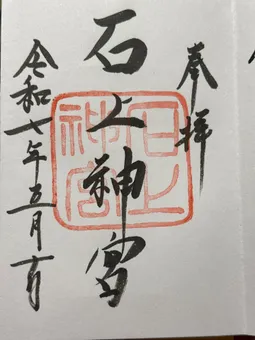 奉拝
石上神宮
石上
神宮
令和七年五月十日